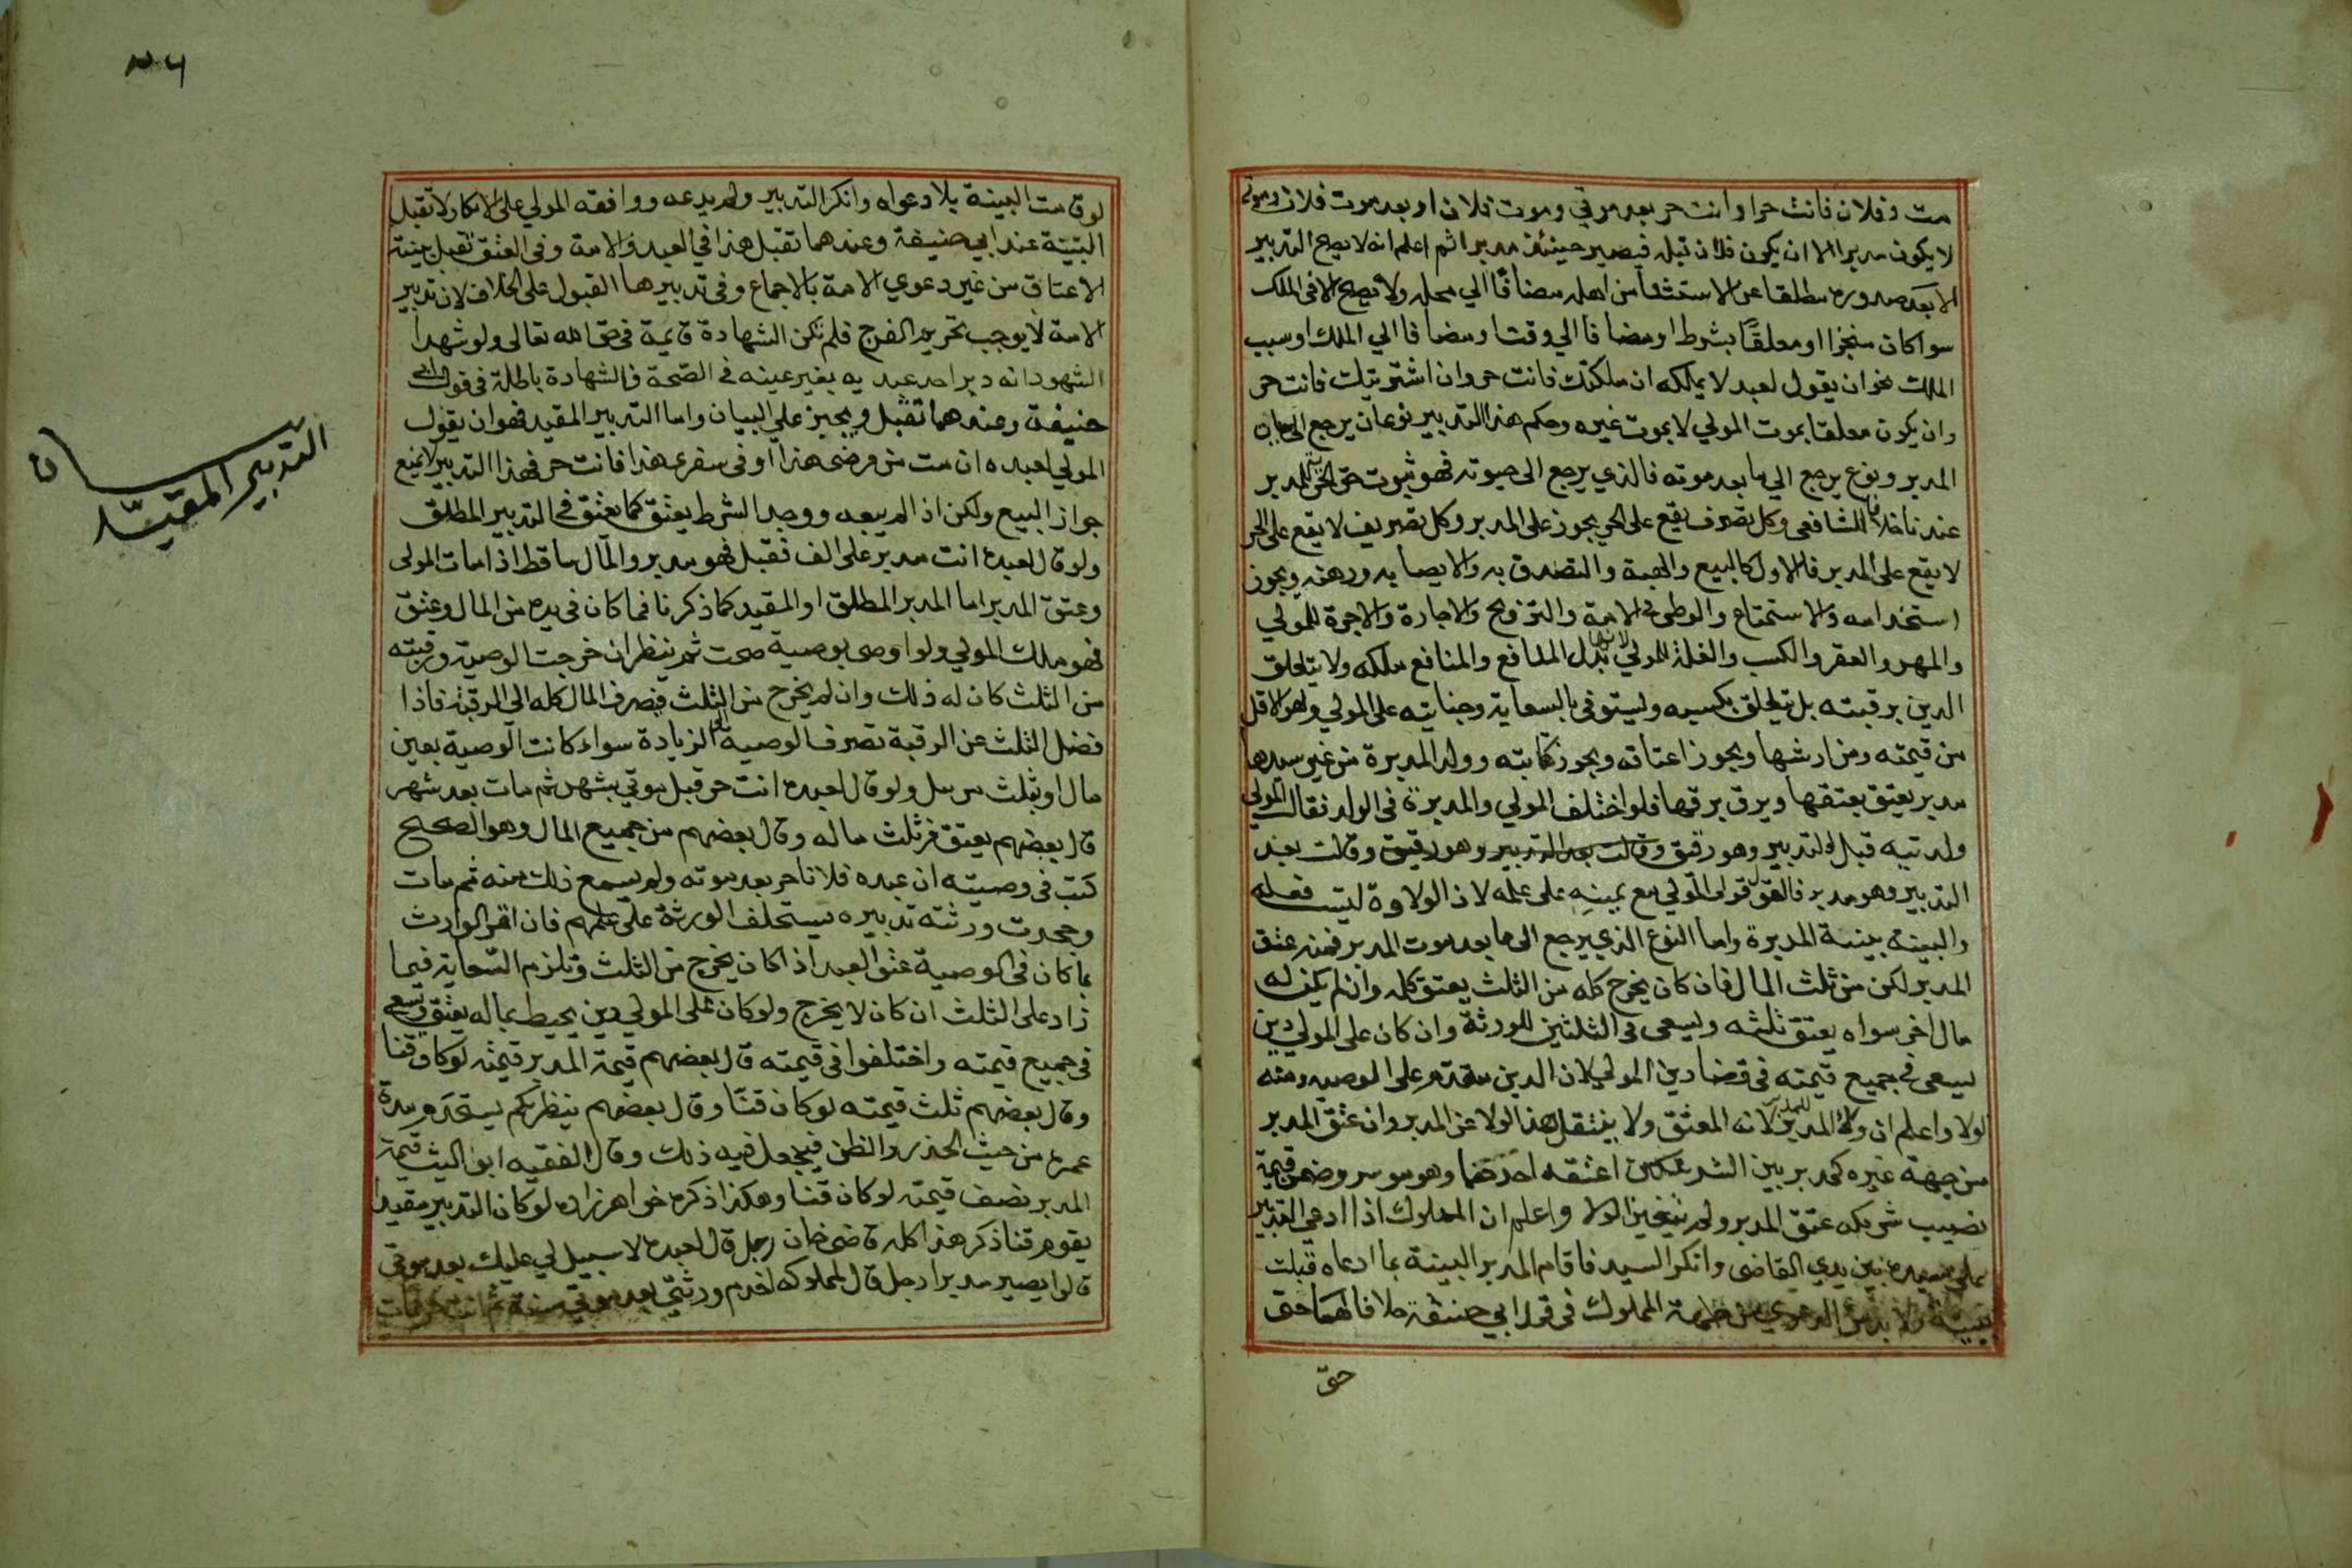 مت وفلان فانت حر او انت حر بعد موتي وموت فلان او بعد موت فلان وموتي
لا يكون مدبرا الا ان يكون فلان قبله فيصير حينئذ مدبرا ثم اعلم انه لا يصح التدبير
الا بعد صدوره مطلقا عن الاستثنا من اهله مضافا الي محله ولا يصح الا في الملك
سوا كان منجزا او معلقا بشرط او مضافا الي وقت او مضافا الي الملك او سبب
الملك نحو ان يقول لعبد لا يملكه ان ملكتك فانت حر وان اشتريتك فانت حر
وان يكون معلقا بموت المولي لا بموت غيره وحكم هذا التدبير نوعان يرجع الى حياة
المدبر ونوع يرجع الي ما بعد موته فالذي يرجع الى حيوته فهو ثبوت حق الحرية للمدبر
عندنا خلافا للشافعي وكل تصرف يقع على الحر يجوز على المدبر وكل تصريف لا يقع على الحر
لا يقع على المدبر فالاول كالبيع والهبة والتصدق به والايصا به ورهنه ويجوز
استخدامه والاستمتاع والوطي في الامة والتزويج والاجارة والاجرة للمولي
والمهر والعقر والكسب والغلة للمولي لانها بدل المنافع والمنافع ملكه ولا يتعلق
الدين برقبته بل يتعلق بكسبه وليستوفى بالسعاية وجنايته على المولي وهو الاقل
من قيمته ومن ارشها ويجوز اعتاقه ويجوز كتابته وولد المدبرة من غير سيدها
مدبر يعتق بعتقها ويرق برقها فلو اختلف المولي والمدبرة في الولد فقال المولي
ولدتيه قبل التدبير وهو رقيق وقالت بعد التدبير وهو رقيق وقالت بعد
التدبير وهو مدبر فالقول قول المولي مع يمينه على علمه لان الولاوة ليست فعله
والبينة بينة المدبرة واما النوع الذي يرجع الى ما بعد موت المدبر فمنه عتق
المدبر لكن من ثلث المال فان كان يخرج كله من الثلث يعتق كله وان لم يكن له
مال اخر سواه يعتق ثلثه ويسعى في الثلثين للورثة وان كان على المولي دين
يسعى في جميع قيمته في قضا دين المولي لان الدين مقدم على الوصيه ومنه
الولا واعلم ان ولا المدبر للمدبر لانه المعتق ولا ينتقل هذا الولا عن المدبر وان عتق المدبر
من جهة غيره كمدبر بين الشريكين اعتقه احدهما وهو موسر وضمن قيمة
نصيب شريكه عتق المدبر ولم يتغير الولا واعلم ان المملوك اذا ادعي التدبير
على سيده بين يدي القاضى وانكر السيد فاقام المدبر البينة بما ادعاه قبلت
بينته ولا بد من الدعوي من جهة المملوك في قول ابي حنيفة خلافا لهما حتى
حتى
٣٠٦
لو قامت البينة بلا دعواه وانكر التدبير ولم يدعه ووافقه المولي على الانكار لا تقبل
البينة عند ابي حنيفة وعندهما تقبل هذا في العبد والامة وفي العتق تقبل بينة
الاعتاق من غير دعوي الامة بالاجماع وفي تدبيرها القبول على الخلاف لان تدبير
الامة لا يوجب تحريم الفرج فلم تكن الشهادة قايمة في حق الله تعالى ولو شهد
الشهود انه دبر احد عبديه بغير عينه في الصحة فالشهادة باطلة في قول ابي
حنيفة وعندهما تقبل ويجبر علي البيان واما التدبير المقيد فهو ان يقول
المولي لعبده ان مت من مرضى هذا او في سفري هذا فانت حر فهذا التدبير لا يمنع
جواز البيع ولكن اذا لم يبعه ووجد الشرط يعتق كما يعتق في التدبير المطلق
ولو قال لعبده انت مدبر على الف فقبل فهو مدبر والمال ساقط اذا مات المولى
وعتق المدبر اما المدبر المطلق او المقيد كما ذكرنا فما كان في يده من المال وعتق
فهو ملك المولي ولو اوصى بوصية صحت ثم ينظر ان خرجت الوصية ورقبته
من الثلث كان له ذلك وان لم يخرج من الثلث فصرف المال كله الي الرقبة فاذا
فضل الثلث عن الرقبة تصرف الوصية الي الزيادة سواء كانت الوصية بعين
مال او بثلث مرسل ولو قال لعبده انت حر قبل موتي بشهر ثم مات بعد شهر
قال بعضهم يعتق من ثلث ماله وقال بعضهم من جميع المال وهو الصحيح
كتب في وصيته ان عبده فلانا حر بعد موته ولم يسمع ذلك منه ثم مات
وجحدت ورثته تدبيره يستحلف الورثة على علمهم فان اقر الوارث
بما كان في الوصية عتق العبد اذا كان يخرج من الثلث وتلزم السعاية فيما
زاد على الثلث ان كان لا يخرج ولو كان على المولي دين يحيط بماله يعتق ويسعى
في جميع قيمته واختلفوا في قيمته قال بعضهم قيمة المدبر قيمته لو كان قنا
وقال بعضهم ثلث قيمته لو كان قنا وقال بعضهم ينظر بكم يستخدم مدة
عمره من حيث الحذر والظن فيجعل فيه ذلك وقال الفقيه ابو الليث قيمة
المدبر نصف قيمته لو كان قنا وهكذا ذكره خواهرزاده لو كان التدبير مقيدا
يقوم قنا ذكر هذا كله قاضى خان رجل قال لعبده لا سبيل لي عليك بعد موتي
قالوا يصير مدبرا رجل قال لمملوكه اخدم ورثتي بعد موتي سنة ثم انت حر فمات
بيان
التدبير المقيد